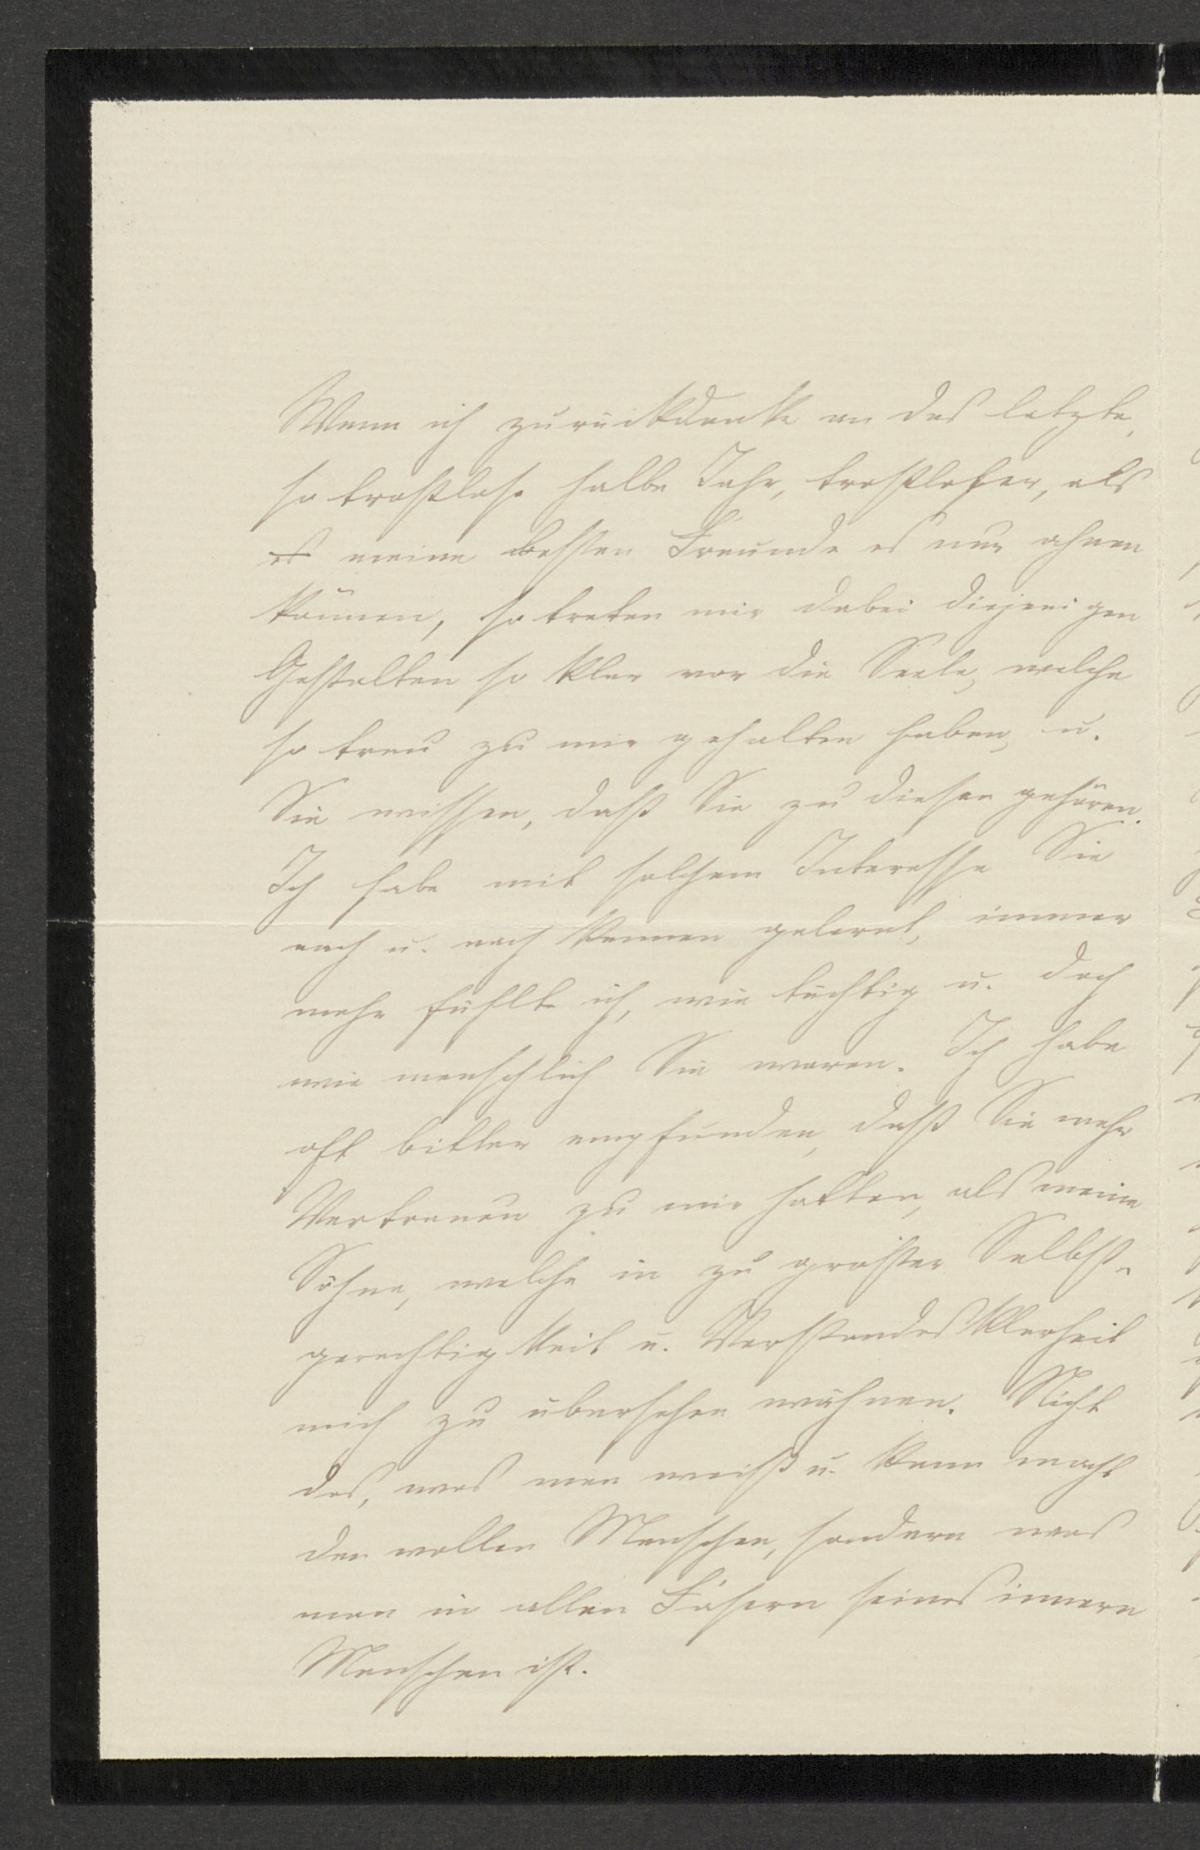 Wenn ich zurückdenke an das letzte,
so trostlose halbe Jahr, trostloser, als
es meine besten Freunde es nur ahnen
können, so treten mir dabei diejenigen
Gestalten so klar vor die Seele, welche
so treu zu mir gehalten haben, u.
Sie wissen, daß Sie zu diesen gehören.
Ich habe mit solchem Interesse Sie
nach u. nach kennen gelernt, immer
mehr fühlte ich, wie tüchtig u. doch
wie menschlich Sie waren. Ich habe
oft bitter empfunden, daß Sie mehr
Vertrauen zu mir hatten, als meine
Söhne, welche in zu großer Selbst-
gerechtigkeit u. Verstandesklarheit
mich zu übersehen wähnen. Nicht
das, was man weiß u. kann macht
den vollen Menschen, sondern was
man in allen Fasern seines innern
Menschen ist.